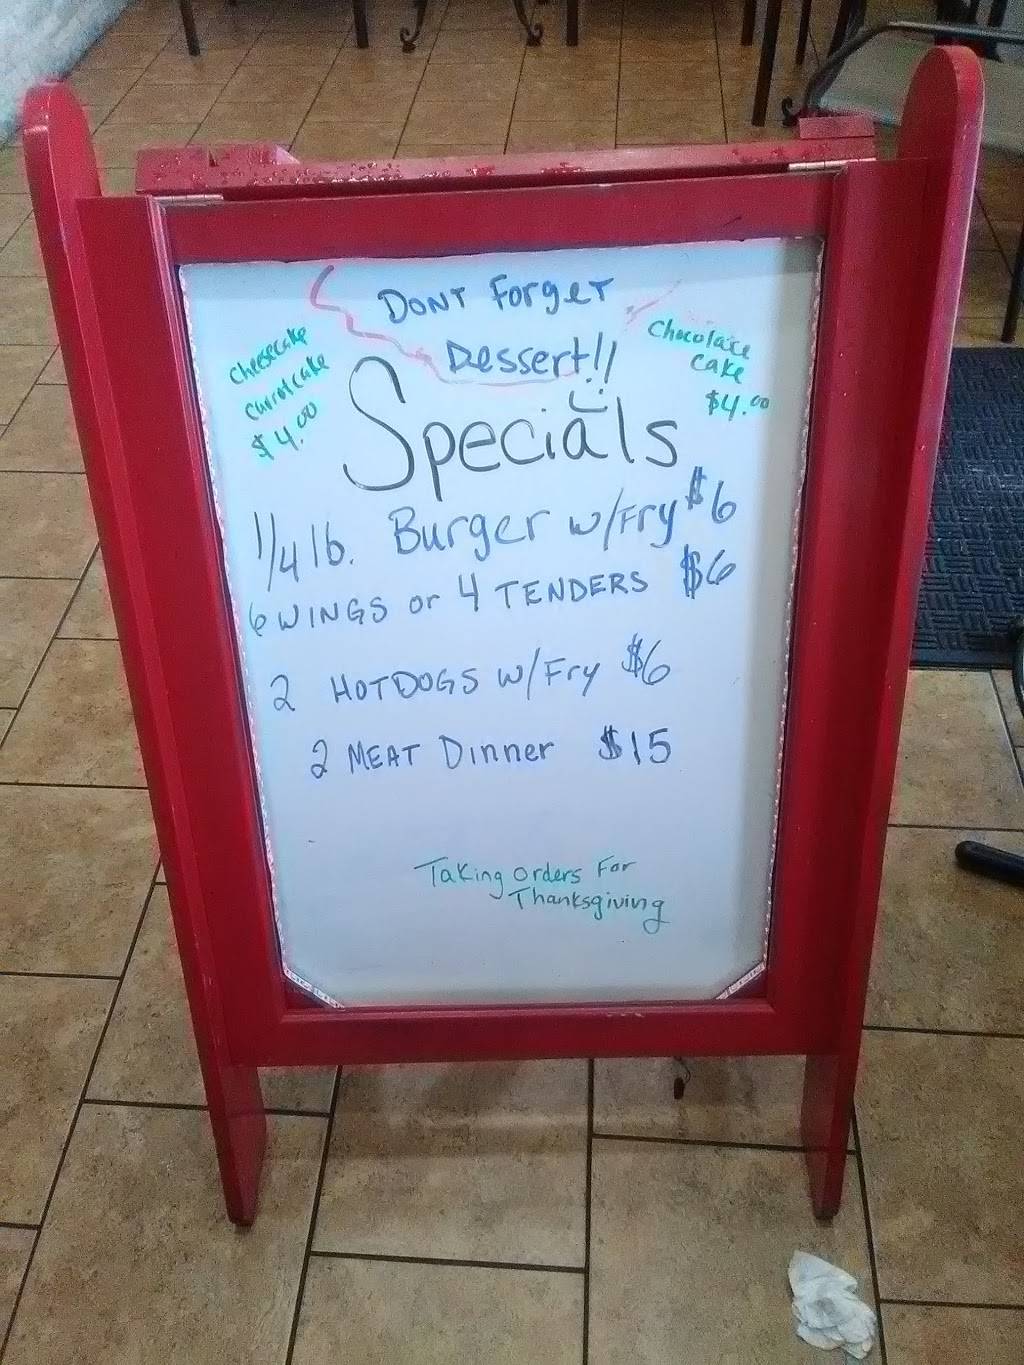 DONT Forget
Dessert!!
Cheesecake
Carrot cake
$4.00
Chocolate
cake
$4.00
Specials
1/4 lb. Burger w/Fry $6
6 WINGS or 4 TENDERS $6
2 HOTDOGS w/Fry $6
2 MEAT Dinner $15
Taking orders For
Thanksgiving